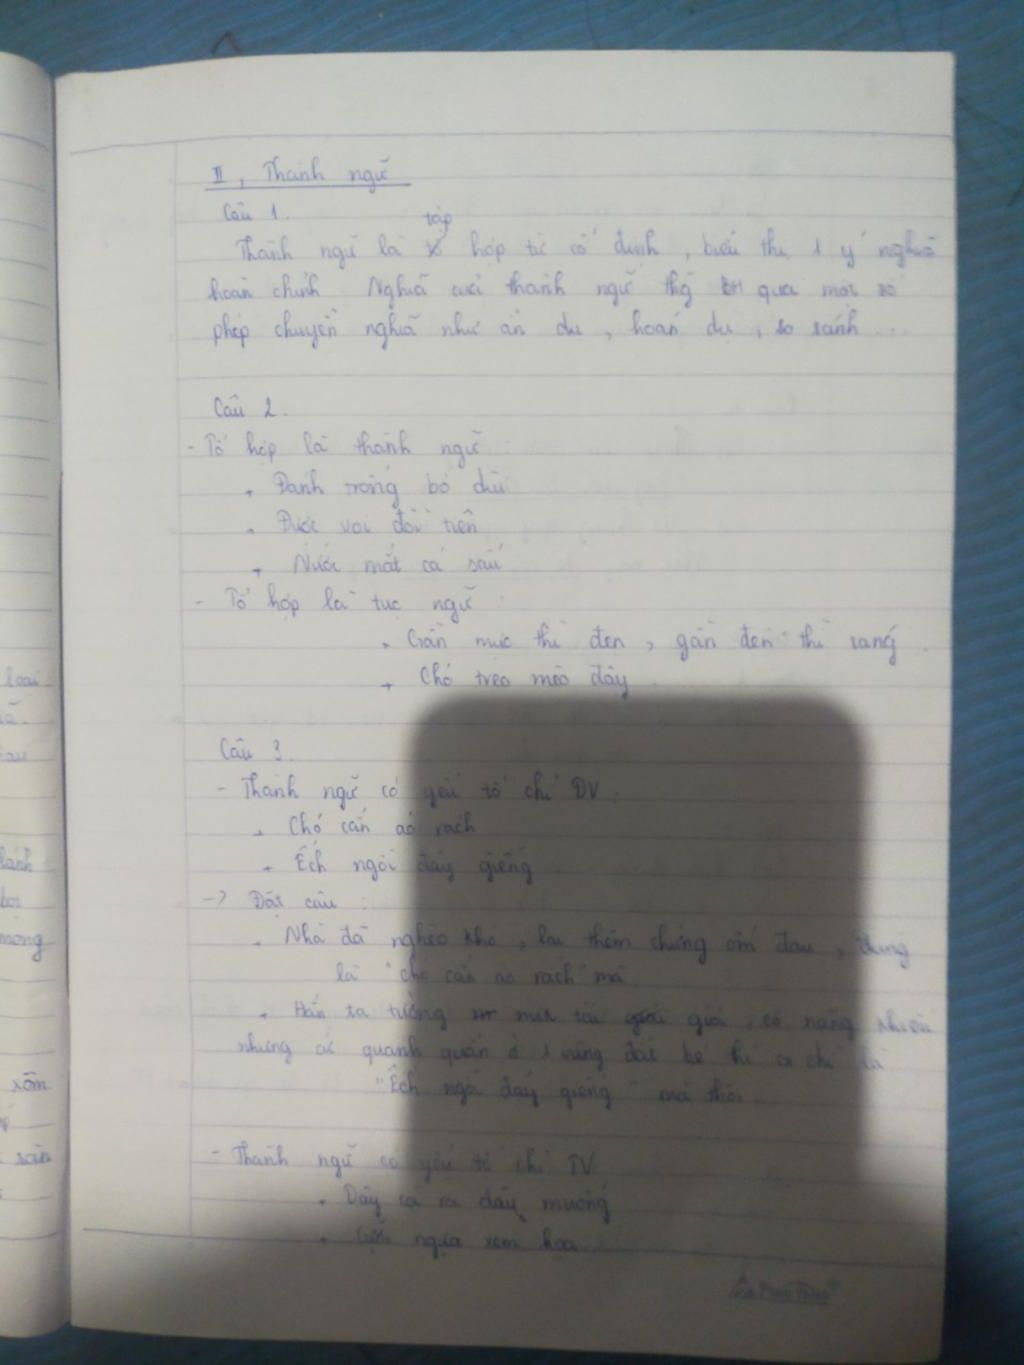 II, Thành ngữ
Câu 1.
tập
Thành ngữ là hợp từ cố định, biểu thị 1 ý nghĩa
hoàn chỉnh Nghĩa của thành ngữ thg qua một số
phép chuyển nghĩa như ẩn dụ, hoán dụ, so sánh ...
Câu 2.
- Tổ hợp là thành ngữ :
+ Đánh trống bỏ dùi
+ Được voi đòi tiên
+ Nước mắt cá sấu
- Tổ hợp là tục ngữ :
+ Gần mực thì đen, gần đèn thì sáng.
+ Chó treo mèo đậy.
Câu 3.
- Thành ngữ có yếu tố chỉ ĐV :
+ Chó cắn áo rách
+ Ếch ngồi đáy giếng
-> Đặt câu :
+ Nhà đã nghèo khó, lại thêm chứng ốm đau, đúng
là "chó cắn áo rách" mà.
+ Hắn ta tưởng mk tài giỏi, có năng khiếu
nhưng cứ quanh quẩn ở 1 vùng đất bé thì chỉ là
"Ếch ngồi đáy giếng" mà thôi.
- Thành ngữ có yếu tố chỉ TV
+ Dây cà ra dây muống
+ Cưỡi ngựa xem hoa
loại
hay
lành
bơi
mong
xóm
sân